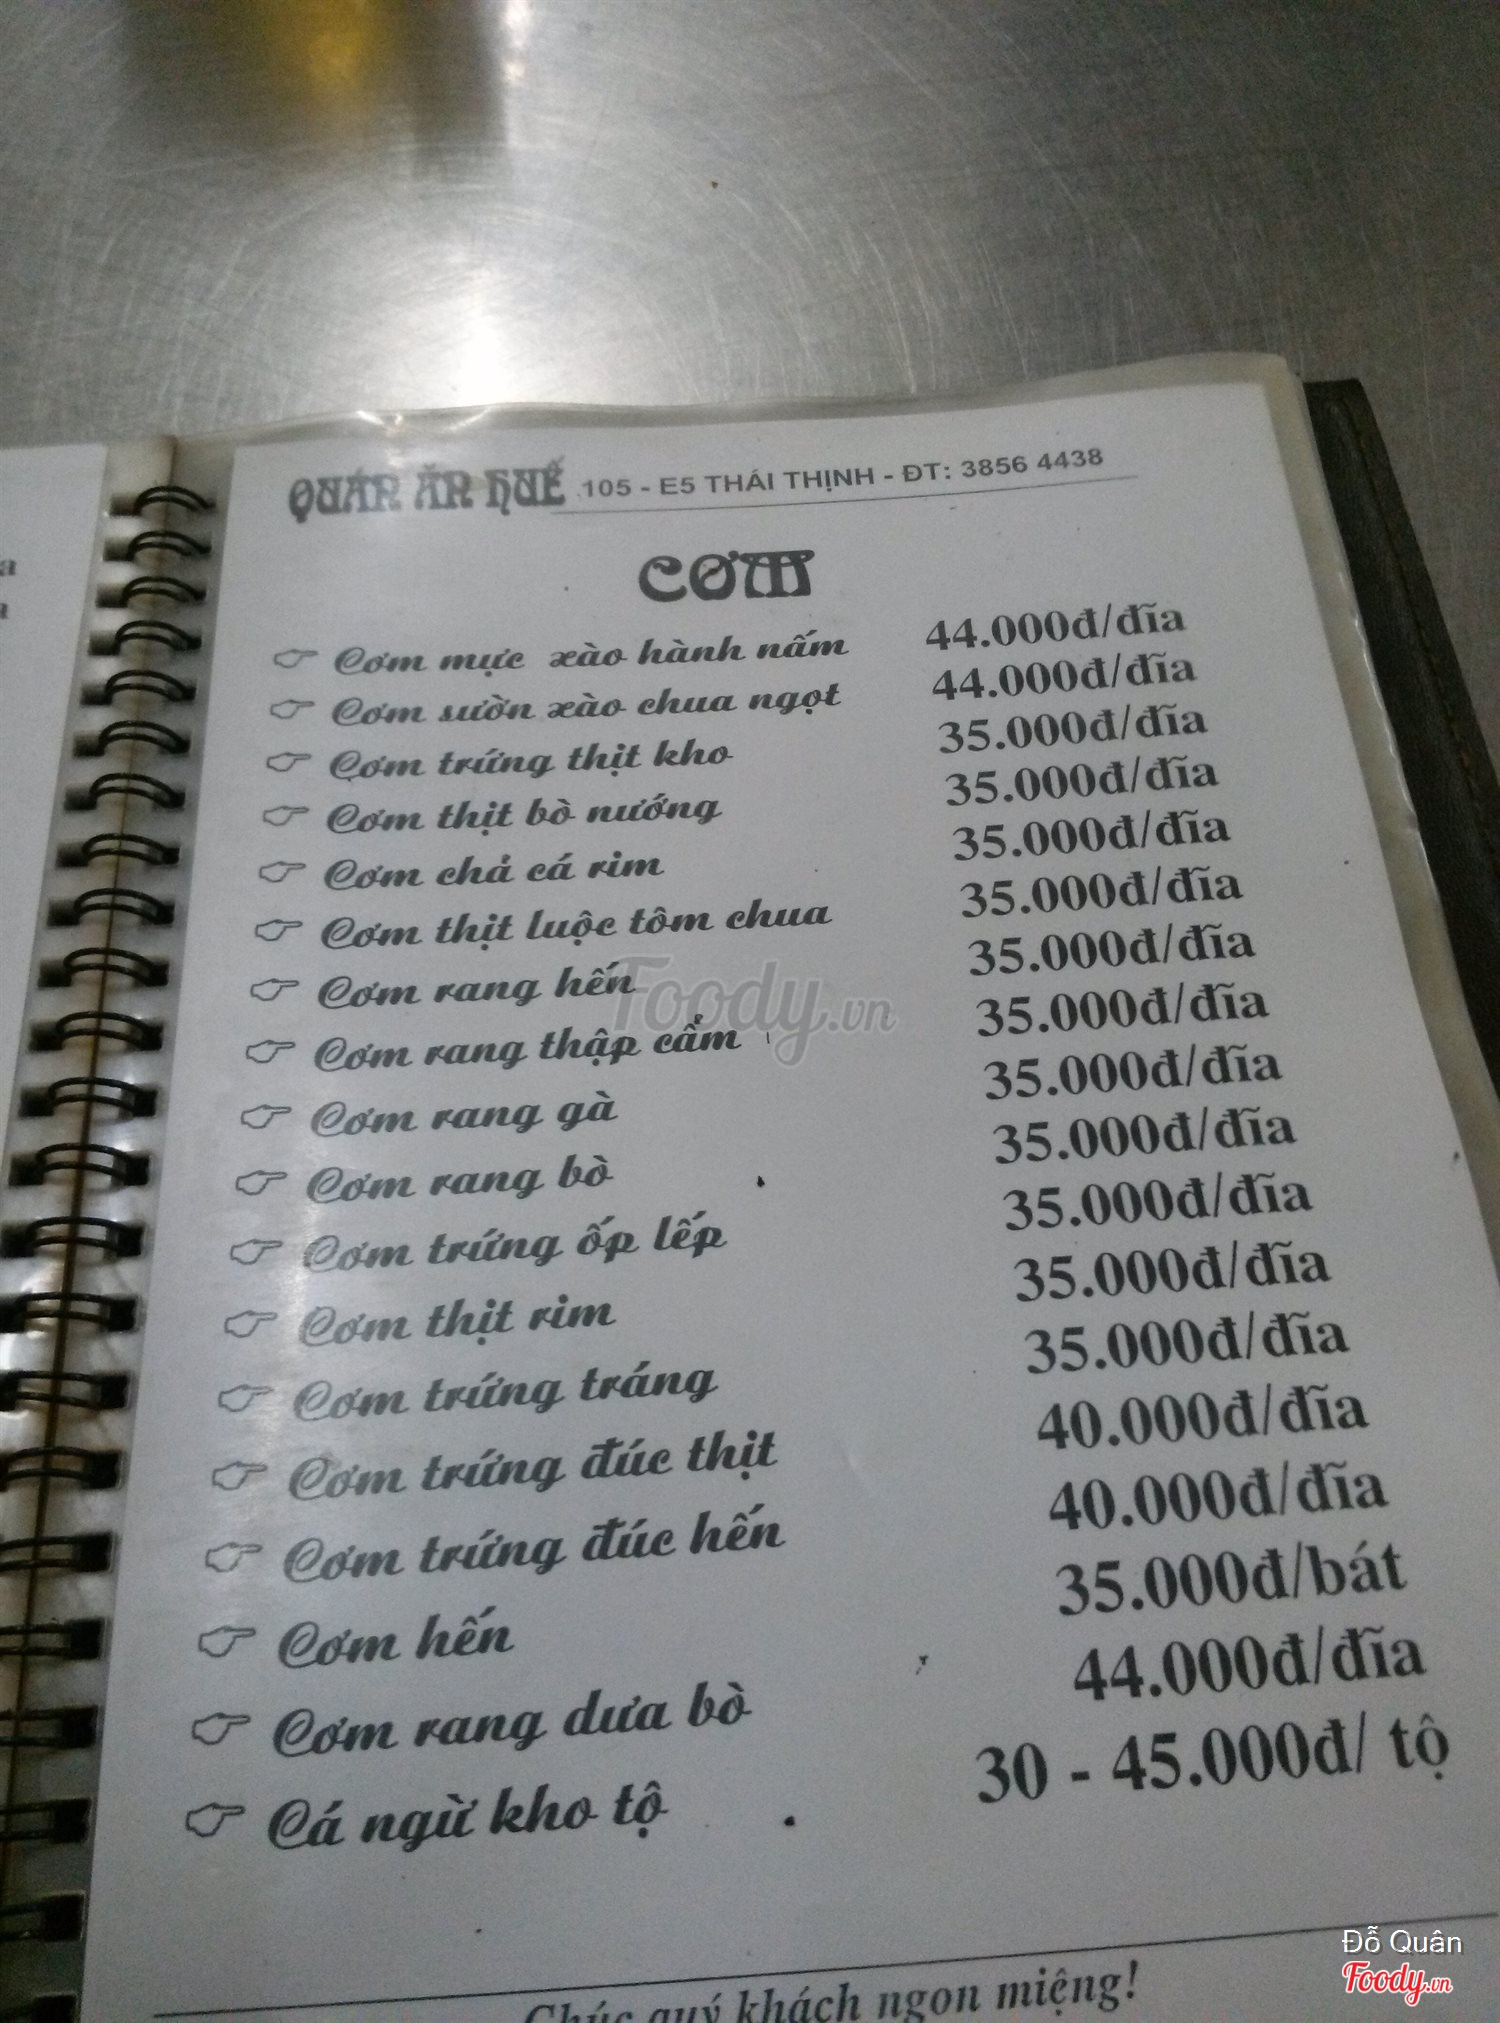 QUÁN ĂN HUẾ 105 - E5 THÁI THỊNH - ĐT: 3856 4438
CƠM
Cơm mực xào hành nấm 44.000đ/đĩa
Cơm sườn xào chua ngọt 44.000đ/đĩa
Cơm trứng thịt kho 35.000đ/đĩa
Cơm thịt bò nướng 35.000đ/đĩa
Cơm chả cá rim 35.000đ/đĩa
Cơm thịt luộc tôm chua 35.000đ/đĩa
Cơm rang hến 35.000đ/đĩa
Cơm rang thập cẩm 35.000đ/đĩa
Cơm rang gà 35.000đ/đĩa
Cơm rang bò 35.000đ/đĩa
Cơm trứng ốp lếp 35.000đ/đĩa
Cơm thịt rim 35.000đ/đĩa
Cơm trứng tráng 35.000đ/đĩa
Cơm trứng đúc thịt 40.000đ/đĩa
Cơm trứng đúc hến 40.000đ/đĩa
Cơm hến 35.000đ/bát
Cơm rang dưa bò 44.000đ/đĩa
Cá ngừ kho tộ 30 - 45.000đ/ tộ
Chúc quý khách ngon miệng!
Foody.vn
Đỗ Quân
Foody.vn